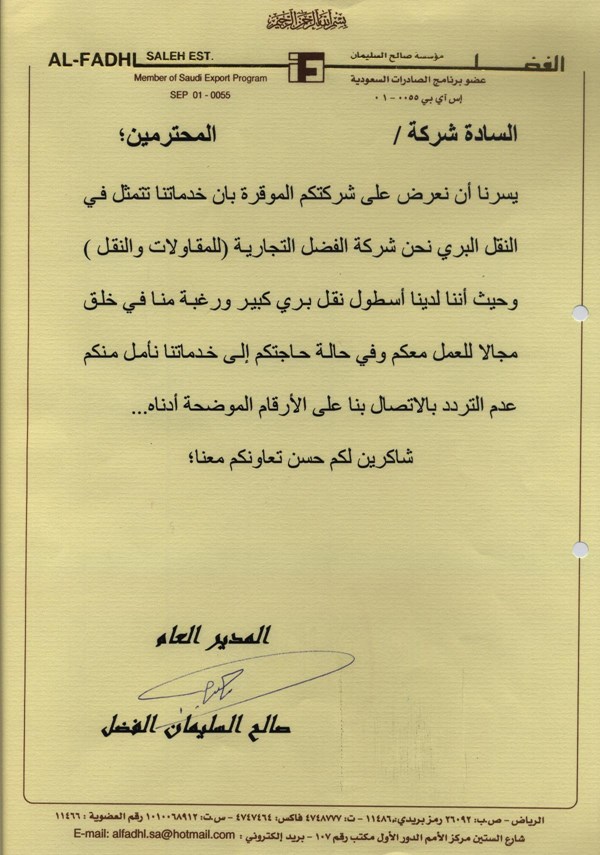 بسم الله الرحمن الرحيم
AL-FADHL SALEH EST.
Member of Saudi Export Program
SEP 01 - 0055
الفضل مؤسسة صالح السليمان
عضو برنامج الصادرات السعودية
إس آي بي ٠٠٥٥ - ٠١
السادة شركة / المحترمين؛
يسرنا أن نعرض على شركتكم الموقرة بان خدماتنا تتمثل في
النقل البري نحن شركة الفضل التجارية (للمقاولات والنقل )
وحيث أننا لدينا أسطول نقل بري كبير ورغبة منا في خلق
مجالا للعمل معكم وفي حالة حاجتكم إلى خدماتنا نأمل منكم
عدم التردد بالاتصال بنا على الأرقام الموضحة أدناه...
شاكرين لكم حسن تعاونكم معنا؛
المدير العام
صالح السليمان الفضل
الرياض - ص.ب: ٢٦٠٩٢ رمز بريدي: ١١٤٨٦ - ت: ٤٧٤٨٧٧٧ فاكس: ٤٧٤٧٤٦٤ - س.ت: ١٠١٠٠٦٨٩١٢ رقم العضوية : ١١٤٦٦
شارع الستين مركز الأمم الدور الأول مكتب رقم ١٠٧ - بريد إلكتروني : E-mail: alfadhl.sa@hotmail.com